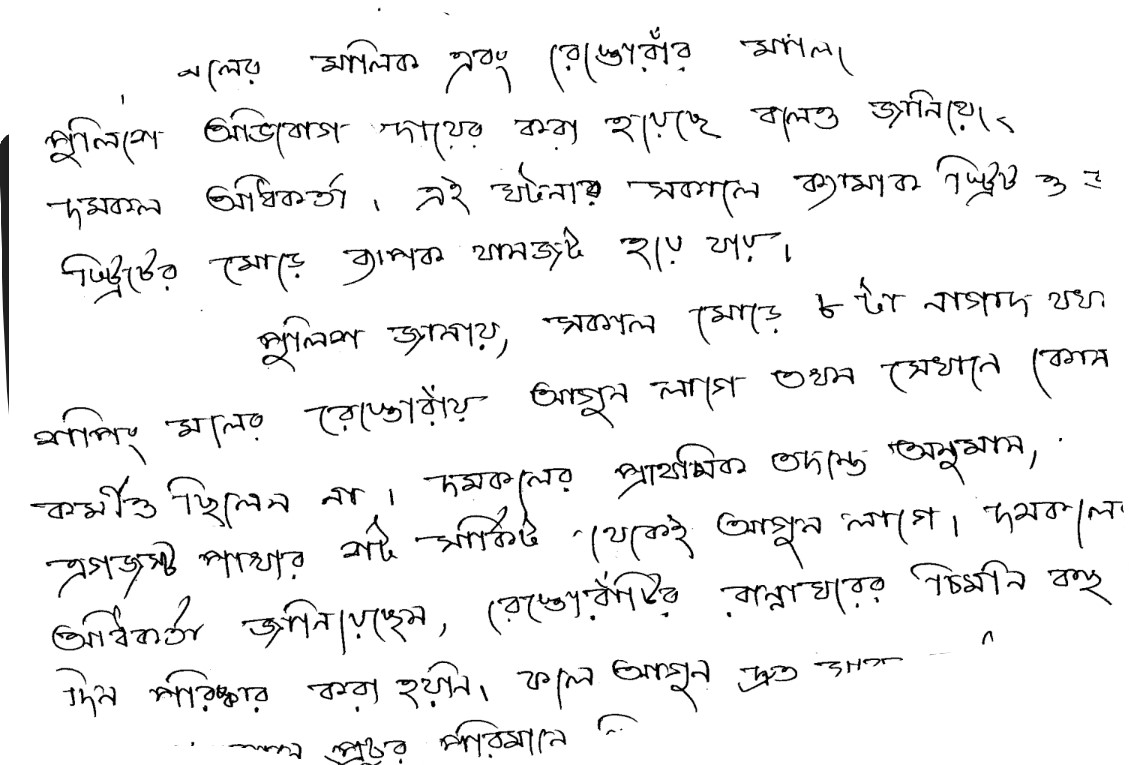 মলের মালিক এবং রেস্তোরাঁর
পুলিশে অভিযোগ দায়ের করা হয়েছে বলেও
দমকল অধিকর্তা। এই ঘটনার সকালে ক্যামাক স্ট্রিট ও
স্ট্রিটের মোড়ে ব্যাপক যানজট হয়ে যায়।
পুলিশ জানায়, সকাল মোড়ে ৮ টা নাগাদ
শপিং মলের রেস্তোরাঁয় আগুন লাগে তখন সেখানে কোন
কর্মীও ছিলেন না। দমকলের প্রাথমিক তদন্তে অনুমান,
এগজস্ট পাখার শর্ট সার্কিট থেকেই আগুন লাগে।
অধিকর্তা জানিয়েছেন, রেস্তোরাঁটির রান্নাঘরের চিমনি বহু
দিন পরিষ্কার করা হয়নি। ফলে আগুন দ্রুত
প্রচুর পরিমানে